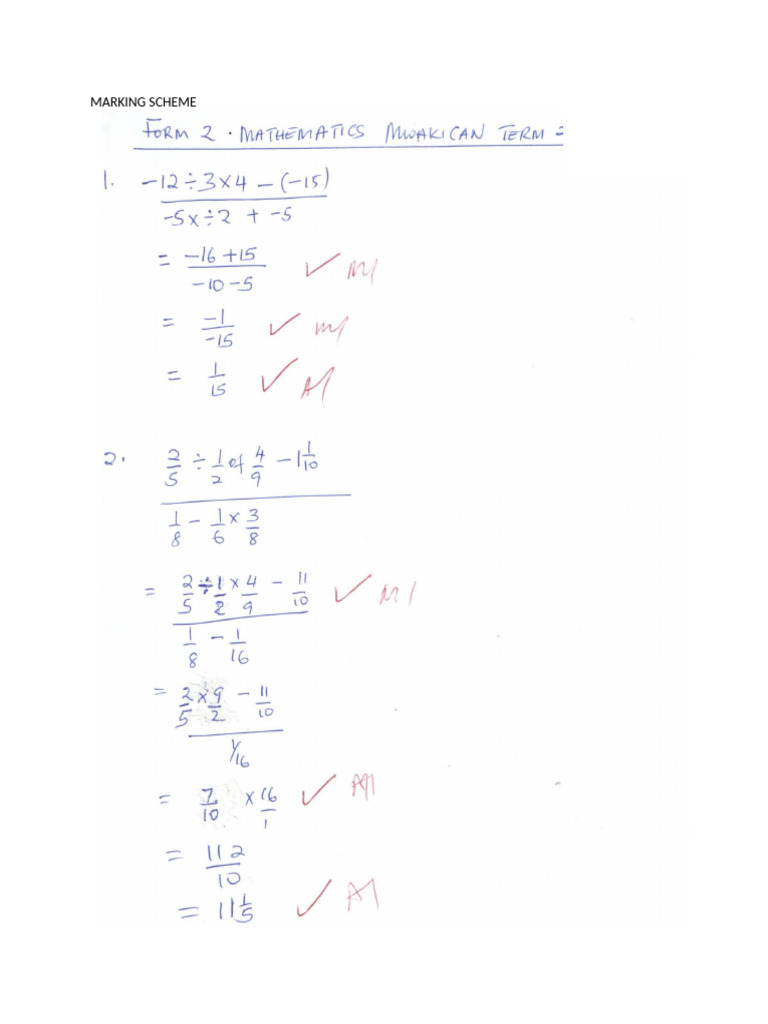 MARKING SCHEME
FORM 2 . MATHEMATICS MWAKICAN TERM =
1. -12÷3×4 - (-15)
-5×÷2 + -5
= -16+15 ✓ M1
-10-5
= -1 ✓ M1
-15
= 1 ✓ A1
15
2. 2/5 ÷ 1/2 of 4/9 - 1 1/10
1/8 - 1/6 × 3/8
= 2/5 ÷ 1/2 × 4/9 - 11/10 ✓ M1
1/8 - 1/16
= 2/5 × 9/2 - 11/10
1/16
= 7/10 × 16/1 ✓
= 112
10
= 11 1/5 ✓ A1